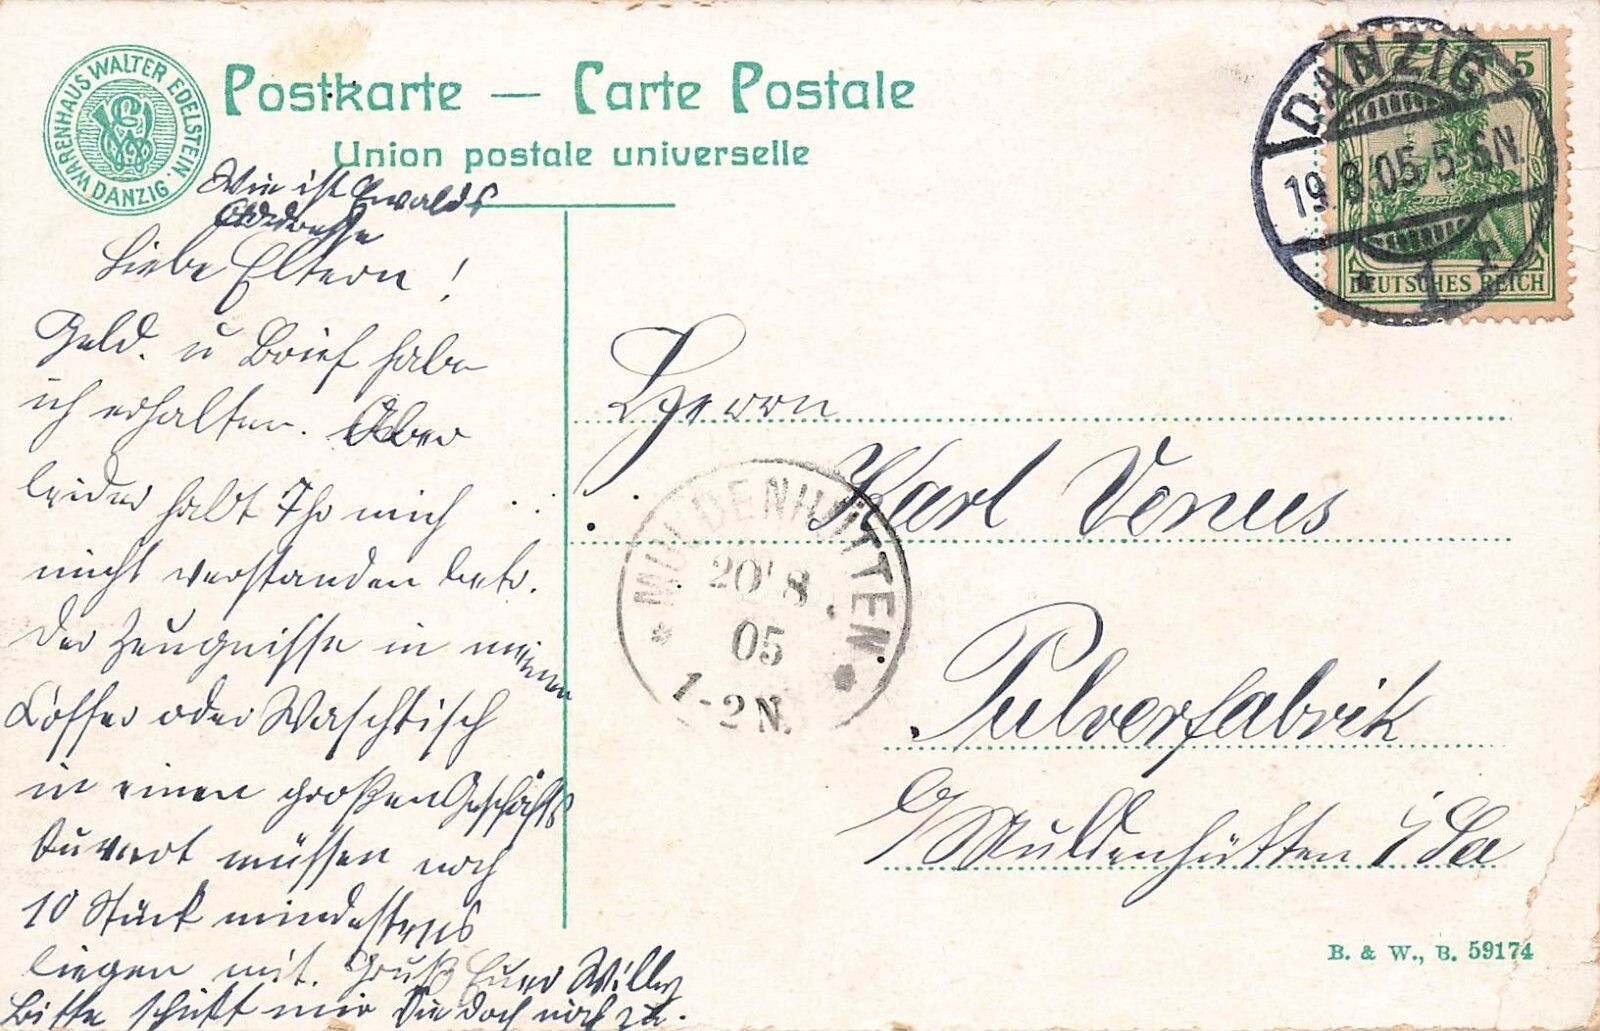 WARENHAUS WALTER EDELSTEIN. DANZIG.
Postkarte — Carte Postale
Union postale universelle
DANZIG
19.8.05.5-6N.
* 1 n
5
DEUTSCHES REICH
Wie ist Ewalds
Addresse
Liebe Eltern!
Geld. u Brief habe
ich erhalten. Aber
leider habt Ihr mich
nicht verstanden betr.
der Zeugnisse in meinem
Koffer oder Waschtisch
in einem großen Geschäfts
Kuvert müssen noch
10 Stück mindestens
liegen mit. Gruß Euer Willy
Bitte schickt mir die doch noch zu.
Herrn
Karl Venus
Pulverfabrik
b/Muldenhütten i/Sa
* MULDENHÜTTEN *
20 8
05
1-2N.
B. & W., B. 59174